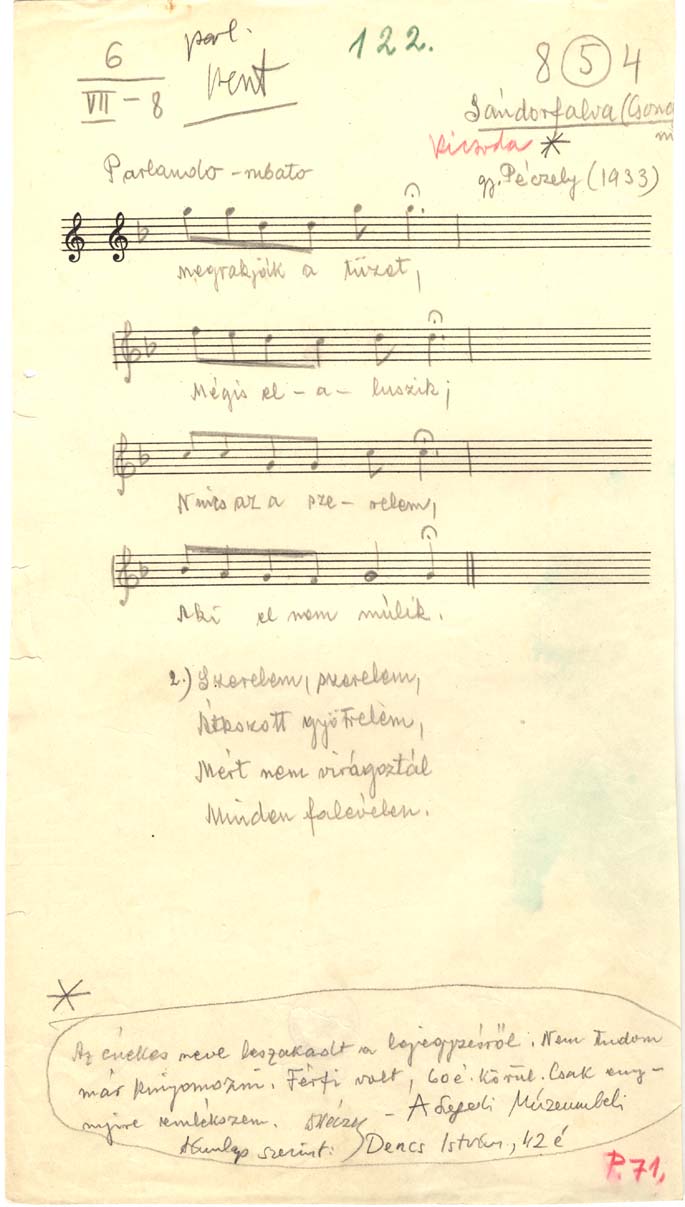 6
VII - 8
parl.
pent
122.
8 (5) 4
Sándorfalva (Csong
m
Kicsoda *
gy. Péczely (1933)
Parlando - rubato
Megrakják a tüzet,
Mégis el - a - luszik;
Nincs az a sze - relem,
Aki el nem múlik.
2.) Szerelem, szerelem,
Átkozott gyötrelem,
Mért nem virágoztál
Minden falevelen.
*
Az énekes neve leszakadt a lejegyzésről. Nem tudom
már kinyomozni. Férfi volt, 60 é. körül. Csak eny-
nyire emlékszem. - A szegedi Múzeumbeli
szerint: Dencs István, 42 é
P. 71,